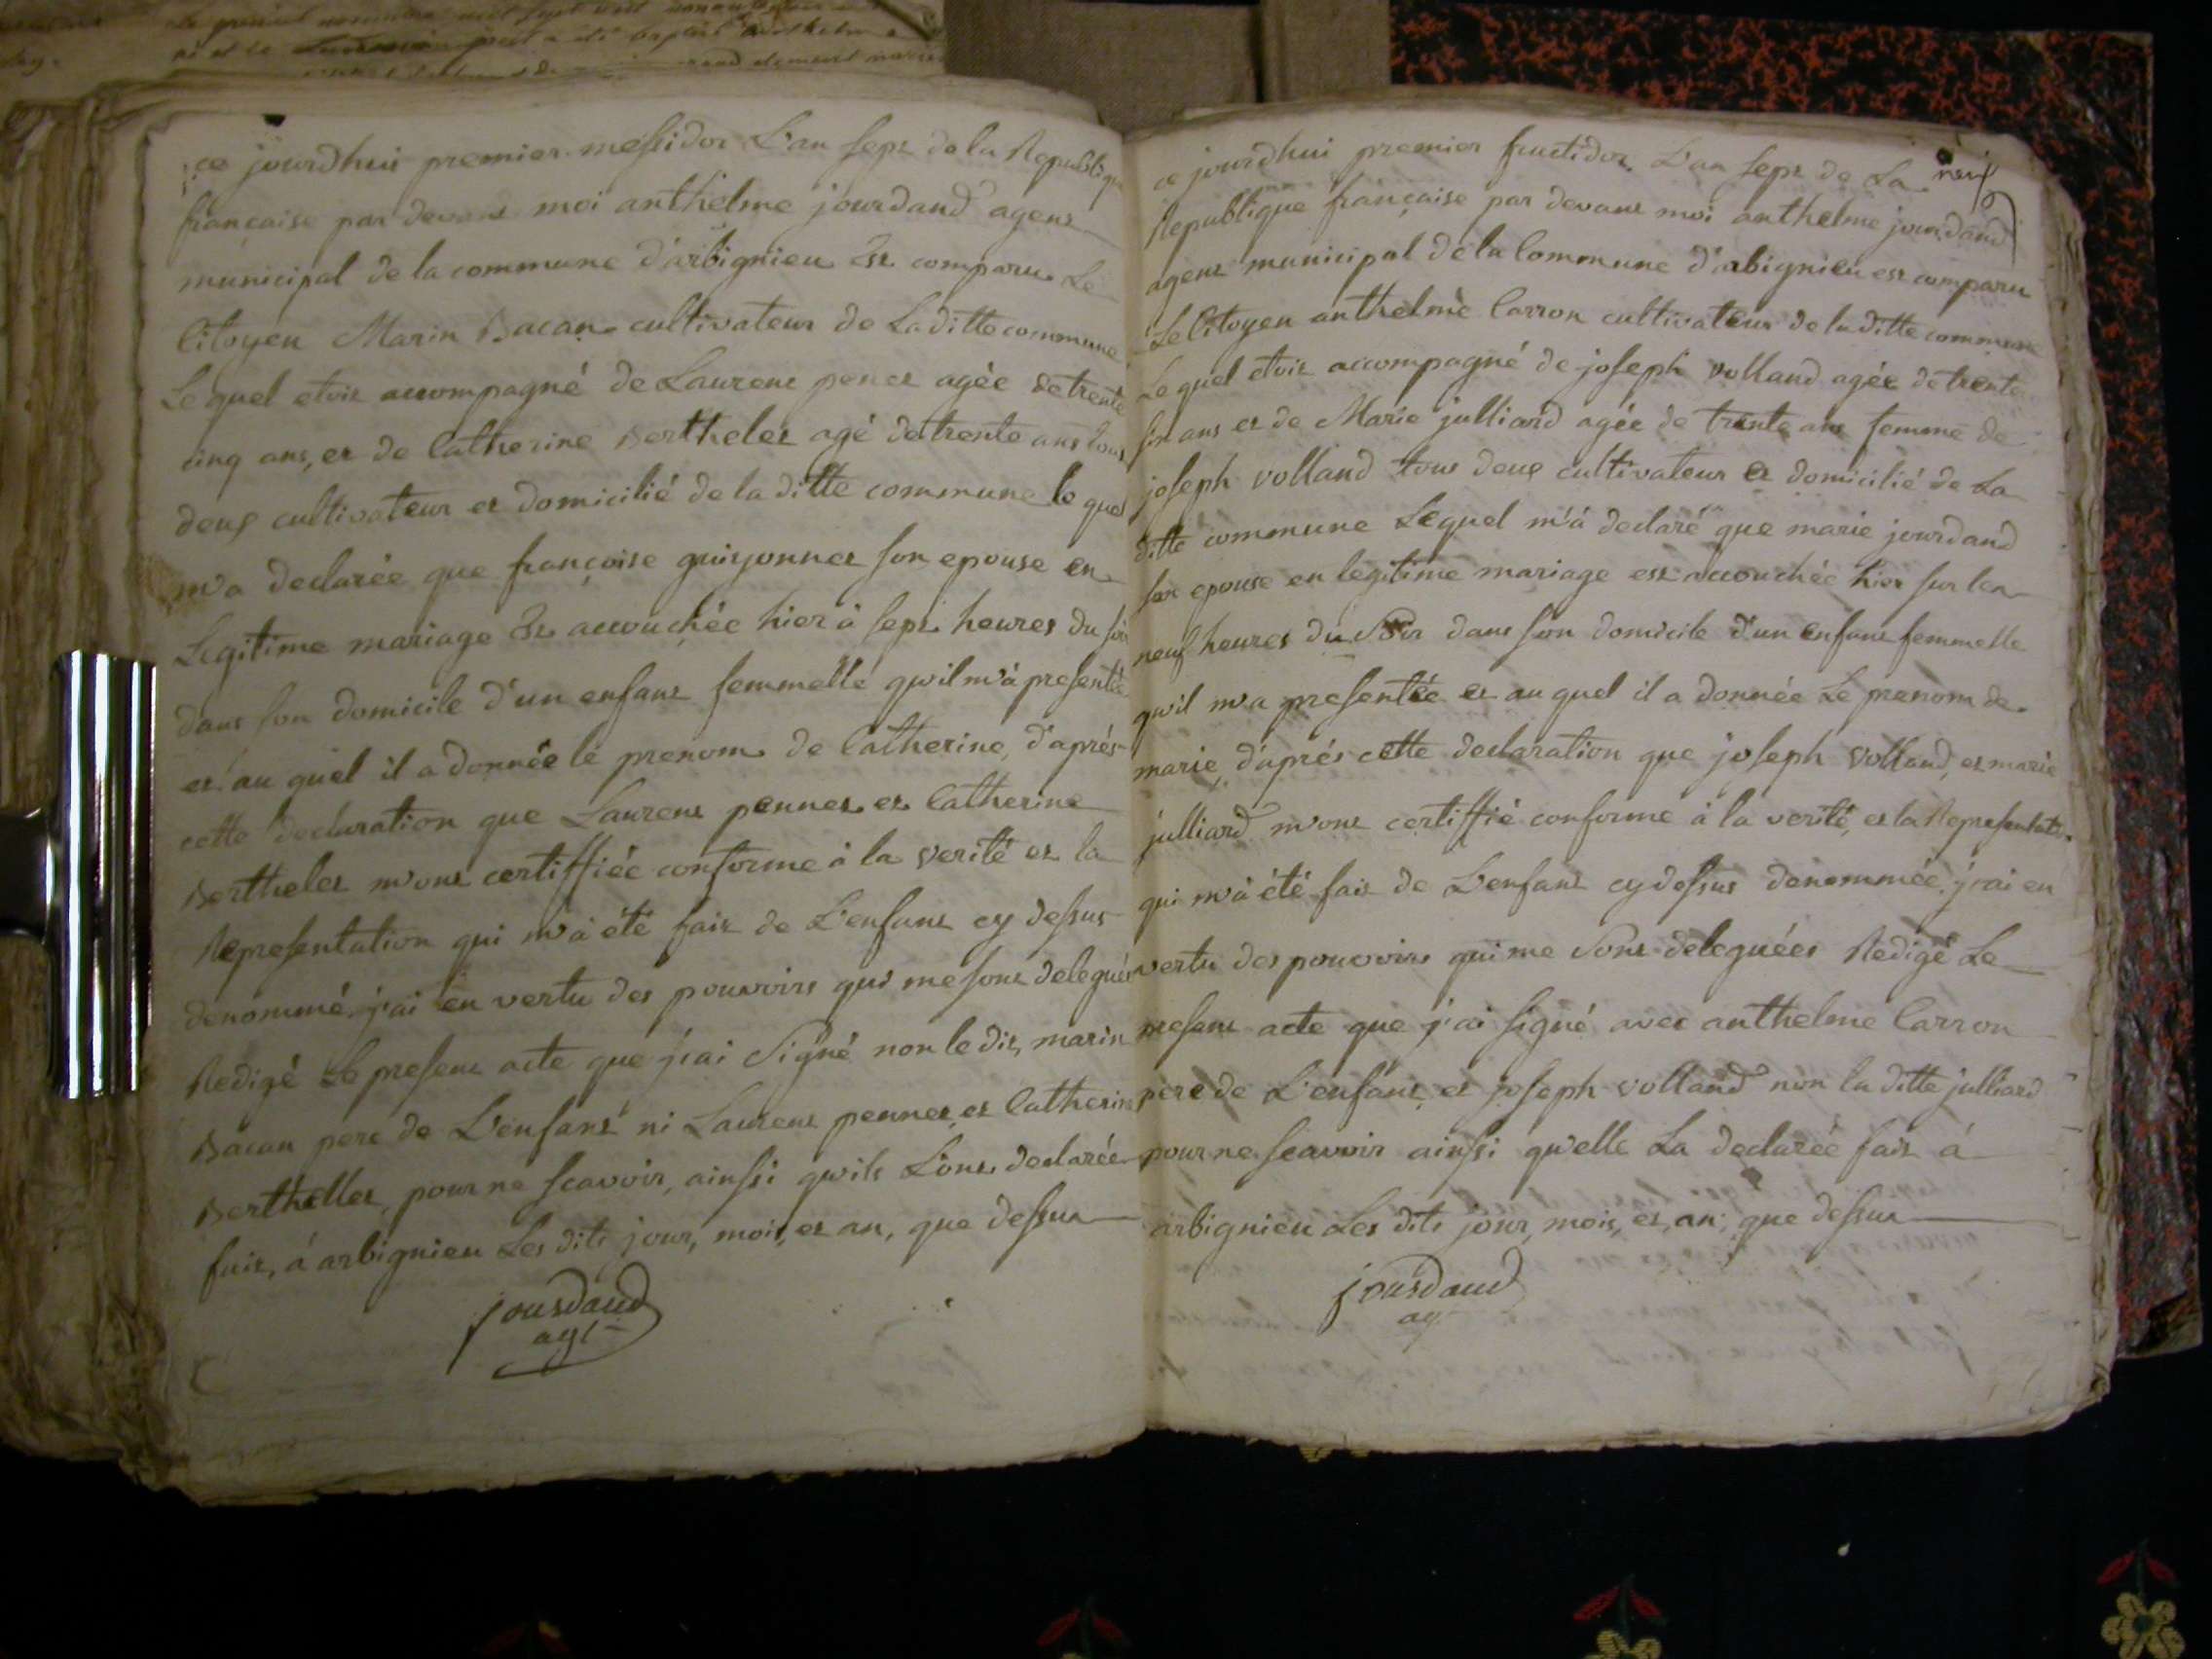 ce jourdhui premier messidor L'an sept de la Republique
française par devant moi anthelme jourdand agent
municipal de la commune d'arbignieu Est comparu Le
Citoyen Marin Bacan cultivateur de La ditte commune
Lequel etoit accompagné de Laurent penet agée de trente
cinq ans, et de Catherine Berthelet agé de trente ans tous
deux cultivateur et domicilié de la ditte commune le quel
m'a declarée que françoise guiyonnet son epouse en
Legitime mariage Est accouchée hier à sept heures du soir
dans son domicile d'un enfant femmelle qu'il m'à presentée
et au quel il a donnée le prenom de Catherine, d'aprés
cette declaration que Laurent pennet et Catherine
Berthelet m'ont certiffiée conforme à la verité et la
Representation qui m'à été fait de L'enfant cy dessus
denommé j'ai en vertu des pouvoirs qui me sont delegués
Redigé Le present acte que j'ai Signé non le dit, marin
Bacan pere de L'enfant ni Laurent pennet, et Catherine
Berthellet, pour ne scavoir, ainssi qu'ils L'ont declarée
fait, à arbignieu Les dits jour, mois, et an, que dessus
jourdand
agt
neuf
ce jourdhui premier fructidor L'an sept de La
Republique française par devant moi anthelme jourdand
agent municipal de la Commune d'arbignieu est comparu
Le Citoyen anthelme Carron cultivateur de la ditte commune
Le quel etoit accompagné de joseph volland agée de trente
six ans et de Marie julliard agée de trente ans femme de
joseph volland tous deux cultivateur et domicilié de La
ditte commune Lequel m'à declaré que marie jourdand
son epouse en legitime mariage est accouchée hier sur les
neuf heures du Soir dans son domicile d'un enfant femmelle
qu'il m'a presentée et au quel il a donnée Le prenom de
marie, d'aprés cette declaration que joseph Volland, et marie
julliard m'ont certiffié conforme à la verité, et la Representation
qui m'à été fait de L'enfant cy dessus denommée, j'ai en
vertu des pouvoirs qui me Sont deleguées Redigé Le
present acte que j'ai signé avec anthelme Carron
pere de L'enfant, et joseph volland non la ditte julliard
pour ne scavoir ainssi qu'elle La declarée fait à
arbignieu Les dits jour, mois, et, an, que dessus
jourdand
agt